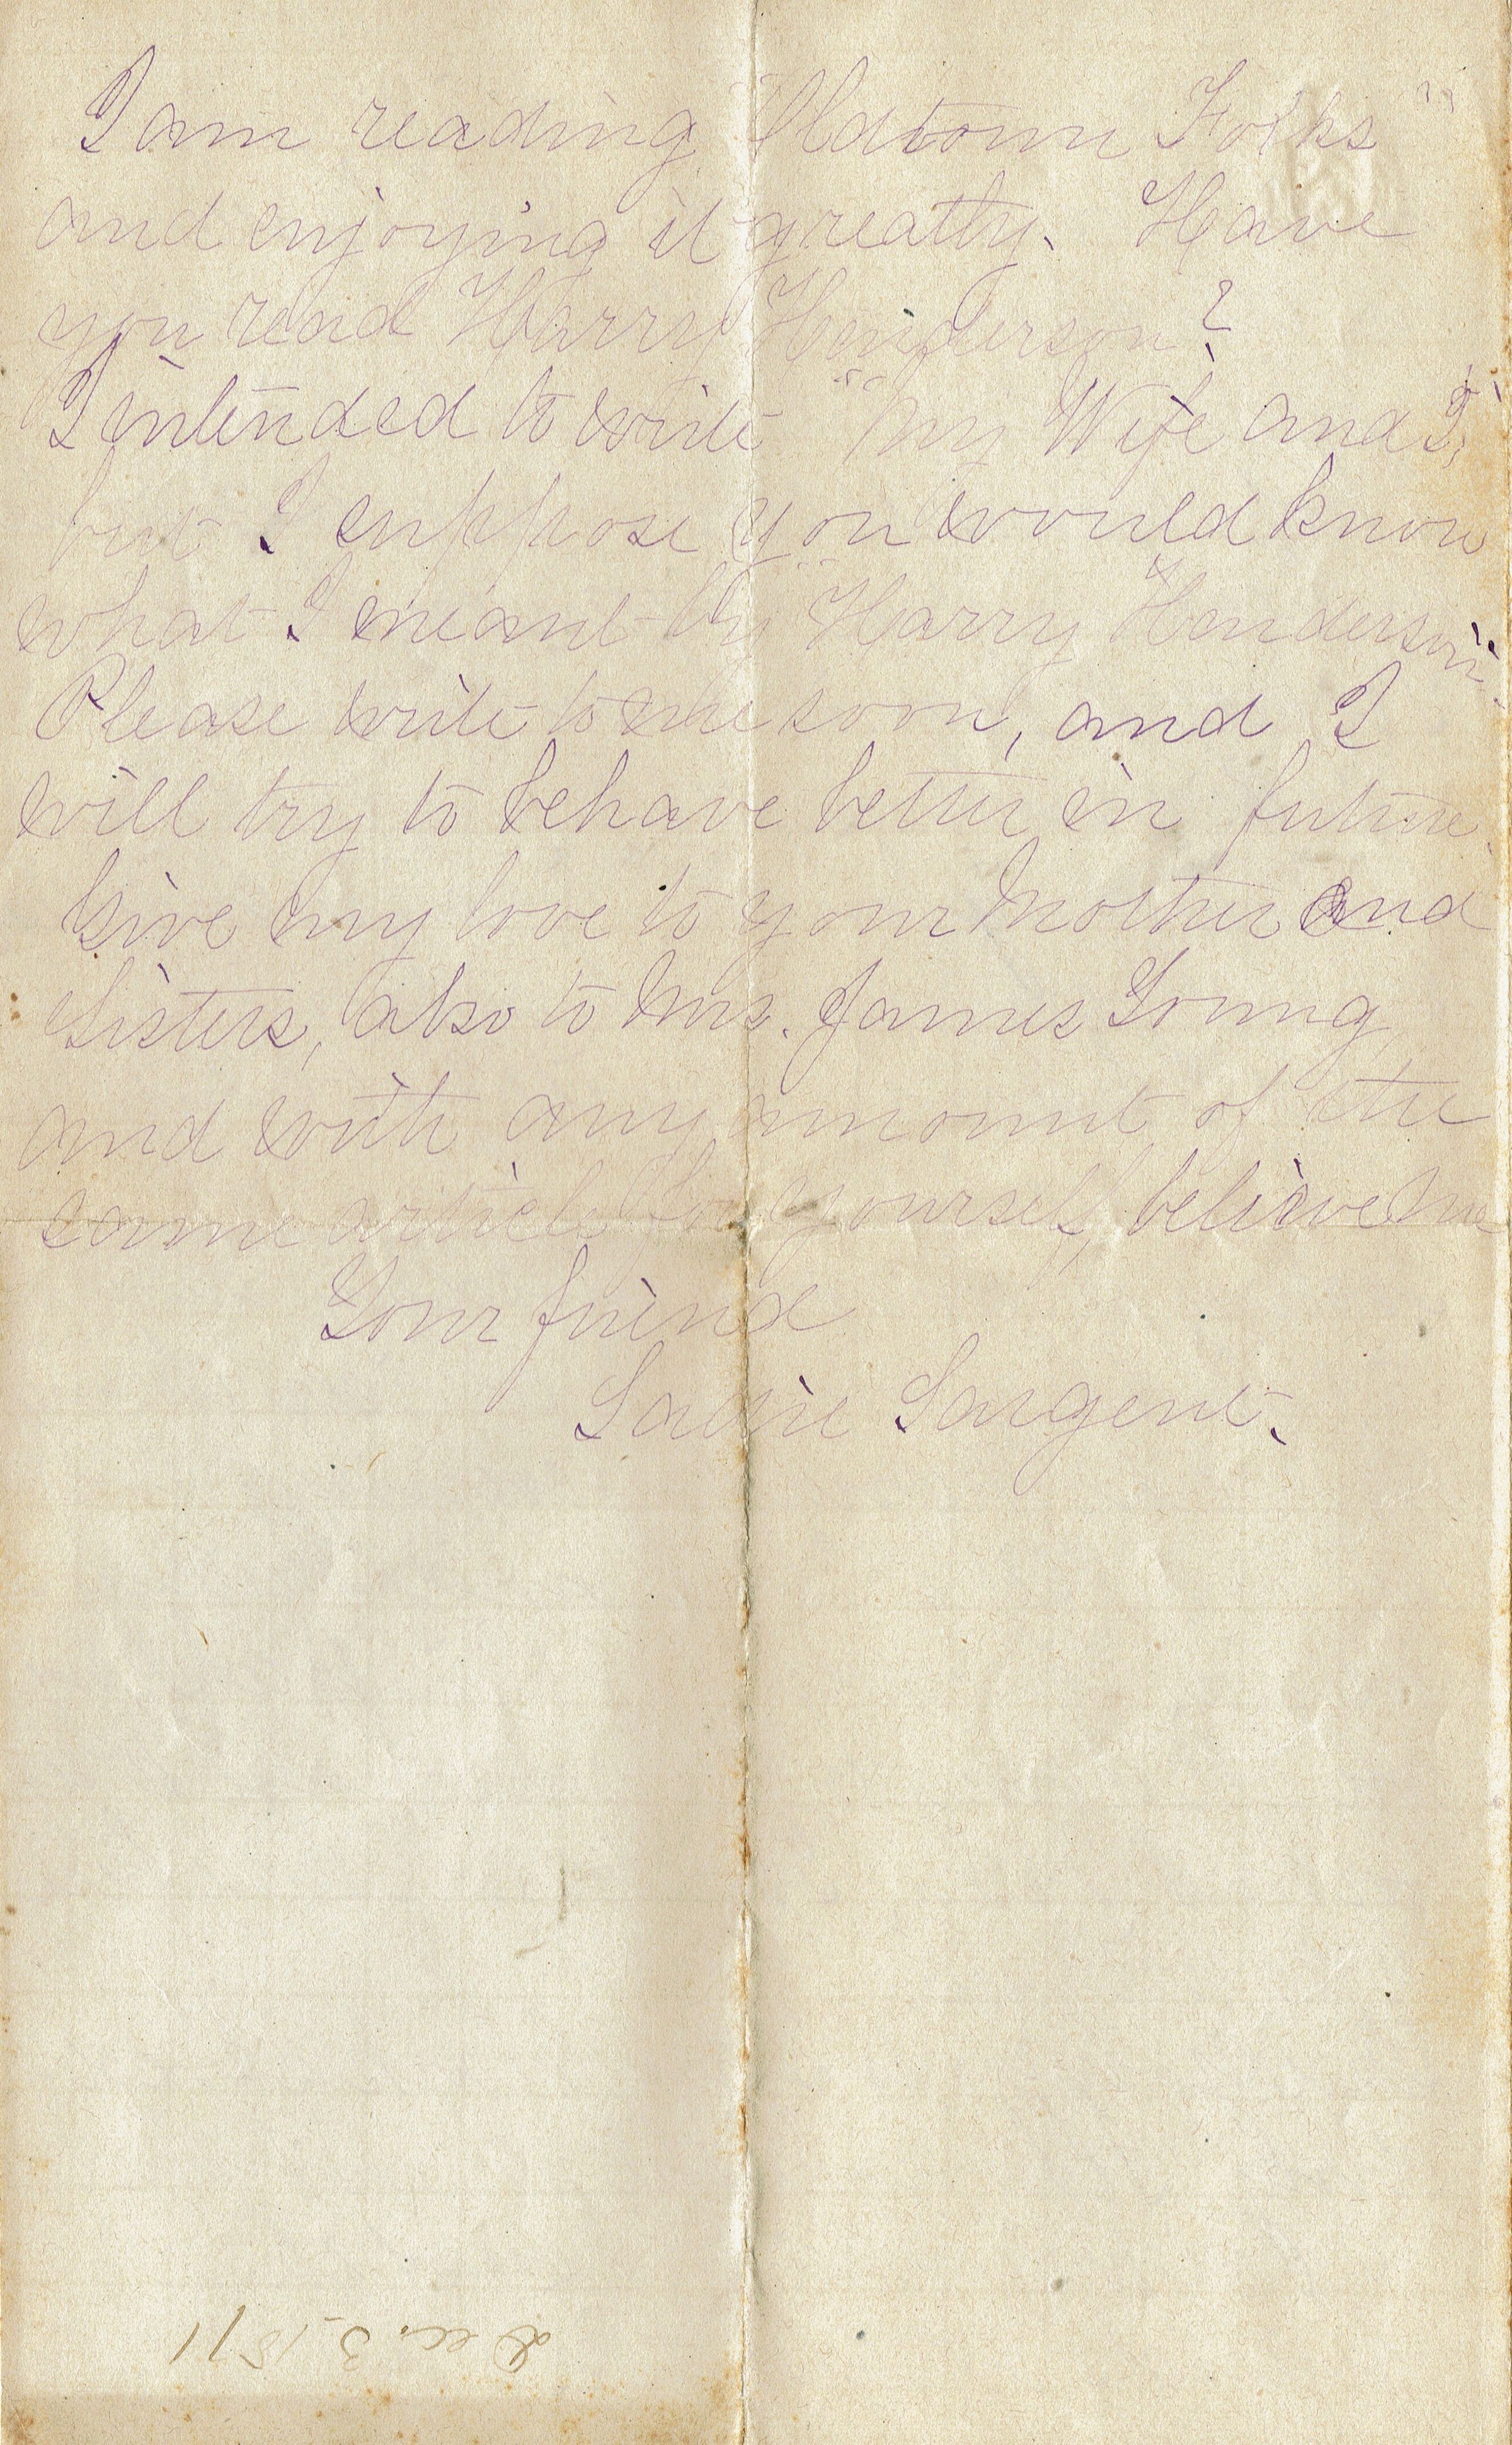 I am reading "Oldtown Folks"
and enjoying it greatly. Have
you read Harry Henderson?
I intended to write "My Wife and I,"
but I suppose you would know
what I meant by "Harry Henderson".
Please write to me soon, and I
will try to behave better in future.
Give my love to your Mother and
Sisters, also to Mrs. James Young,
and with any amount of the
same article for yourself, believe me
Your friend
Sadie Sargent.
Dec. 3, 1871